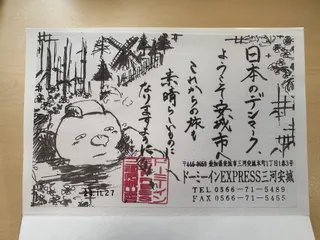 日本のデンマーク、
ようこそ安城市へ
これからの旅が
素晴らしいものに
なりますように
〒446-0056 愛知県安城市三河安城本町1丁目1番3号
ドーミーインEXPRESS三河安城
TEL 0566-71-5489
FAX 0566-71-5455
11.27